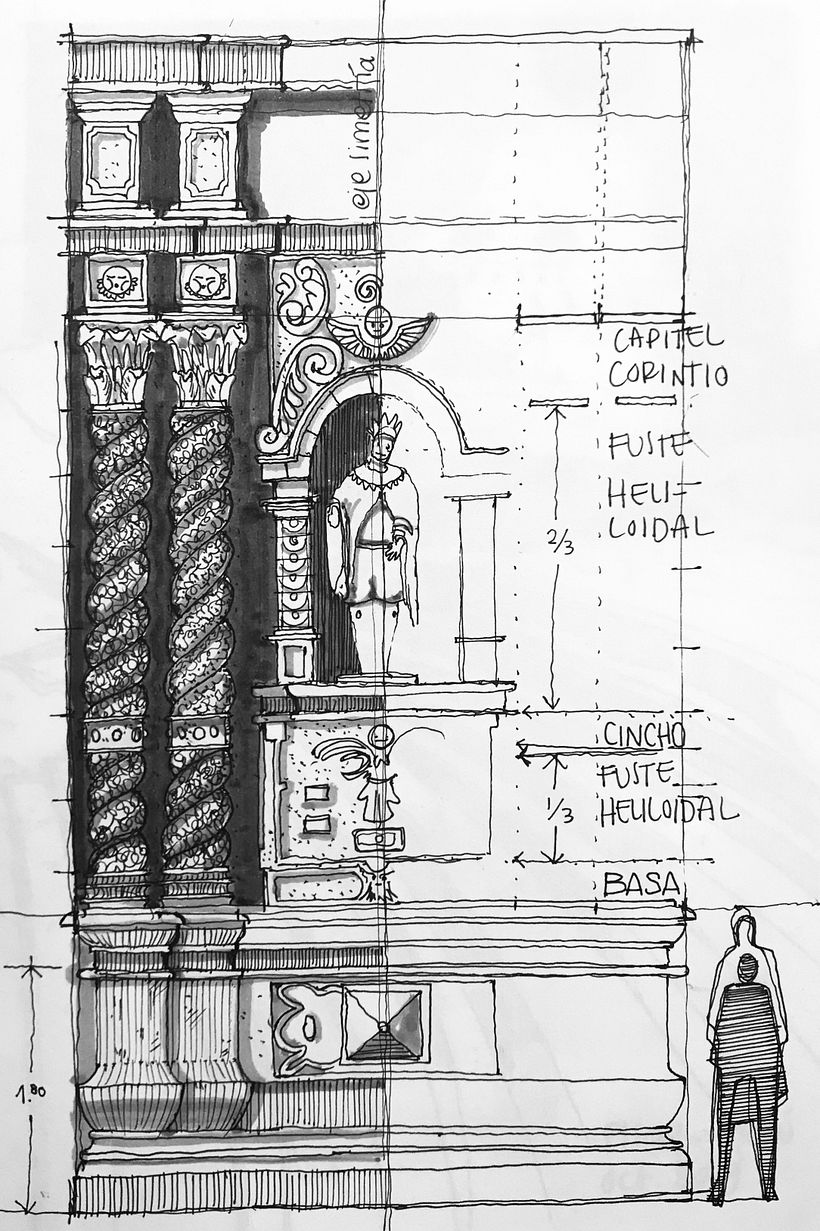 eje simetría
CAPITEL
CORINTIO
FUSTE
HELI-
COIDAL
2/3
CINCHO
FUSTE
1/3
HELICOIDAL
BASA
1.80